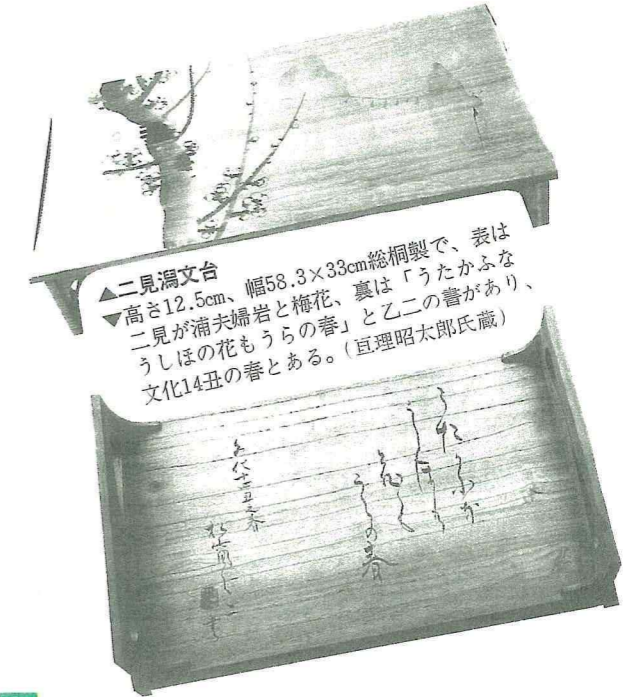 ▲二見潟文台
▼高さ12.5cm、幅58.3×33cm総桐製で、表は
二見が浦夫婦岩と梅花、裏は「うたかふな
うしほの花もうらの春」と乙二の書があり、
文化14丑の春とある。(亘理昭太郎氏蔵)
うたかふな
うしほの
花も
うらの春